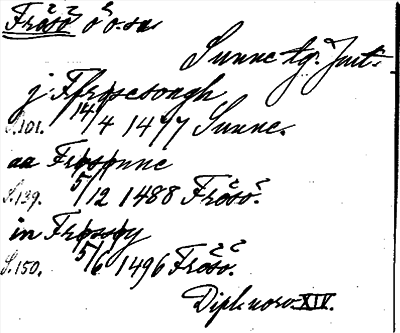 Frösö ö o.sn
Sunne tg. Jmt.
j Ffrøsesongh
S.101. 14/4 1477 Sunne.
aa Frøsønne
S.139. 5/12 1488 Frösö.
in Frøsøy
S.150. 5/6 1496 Frösö.
Dipl. norv. XIV.